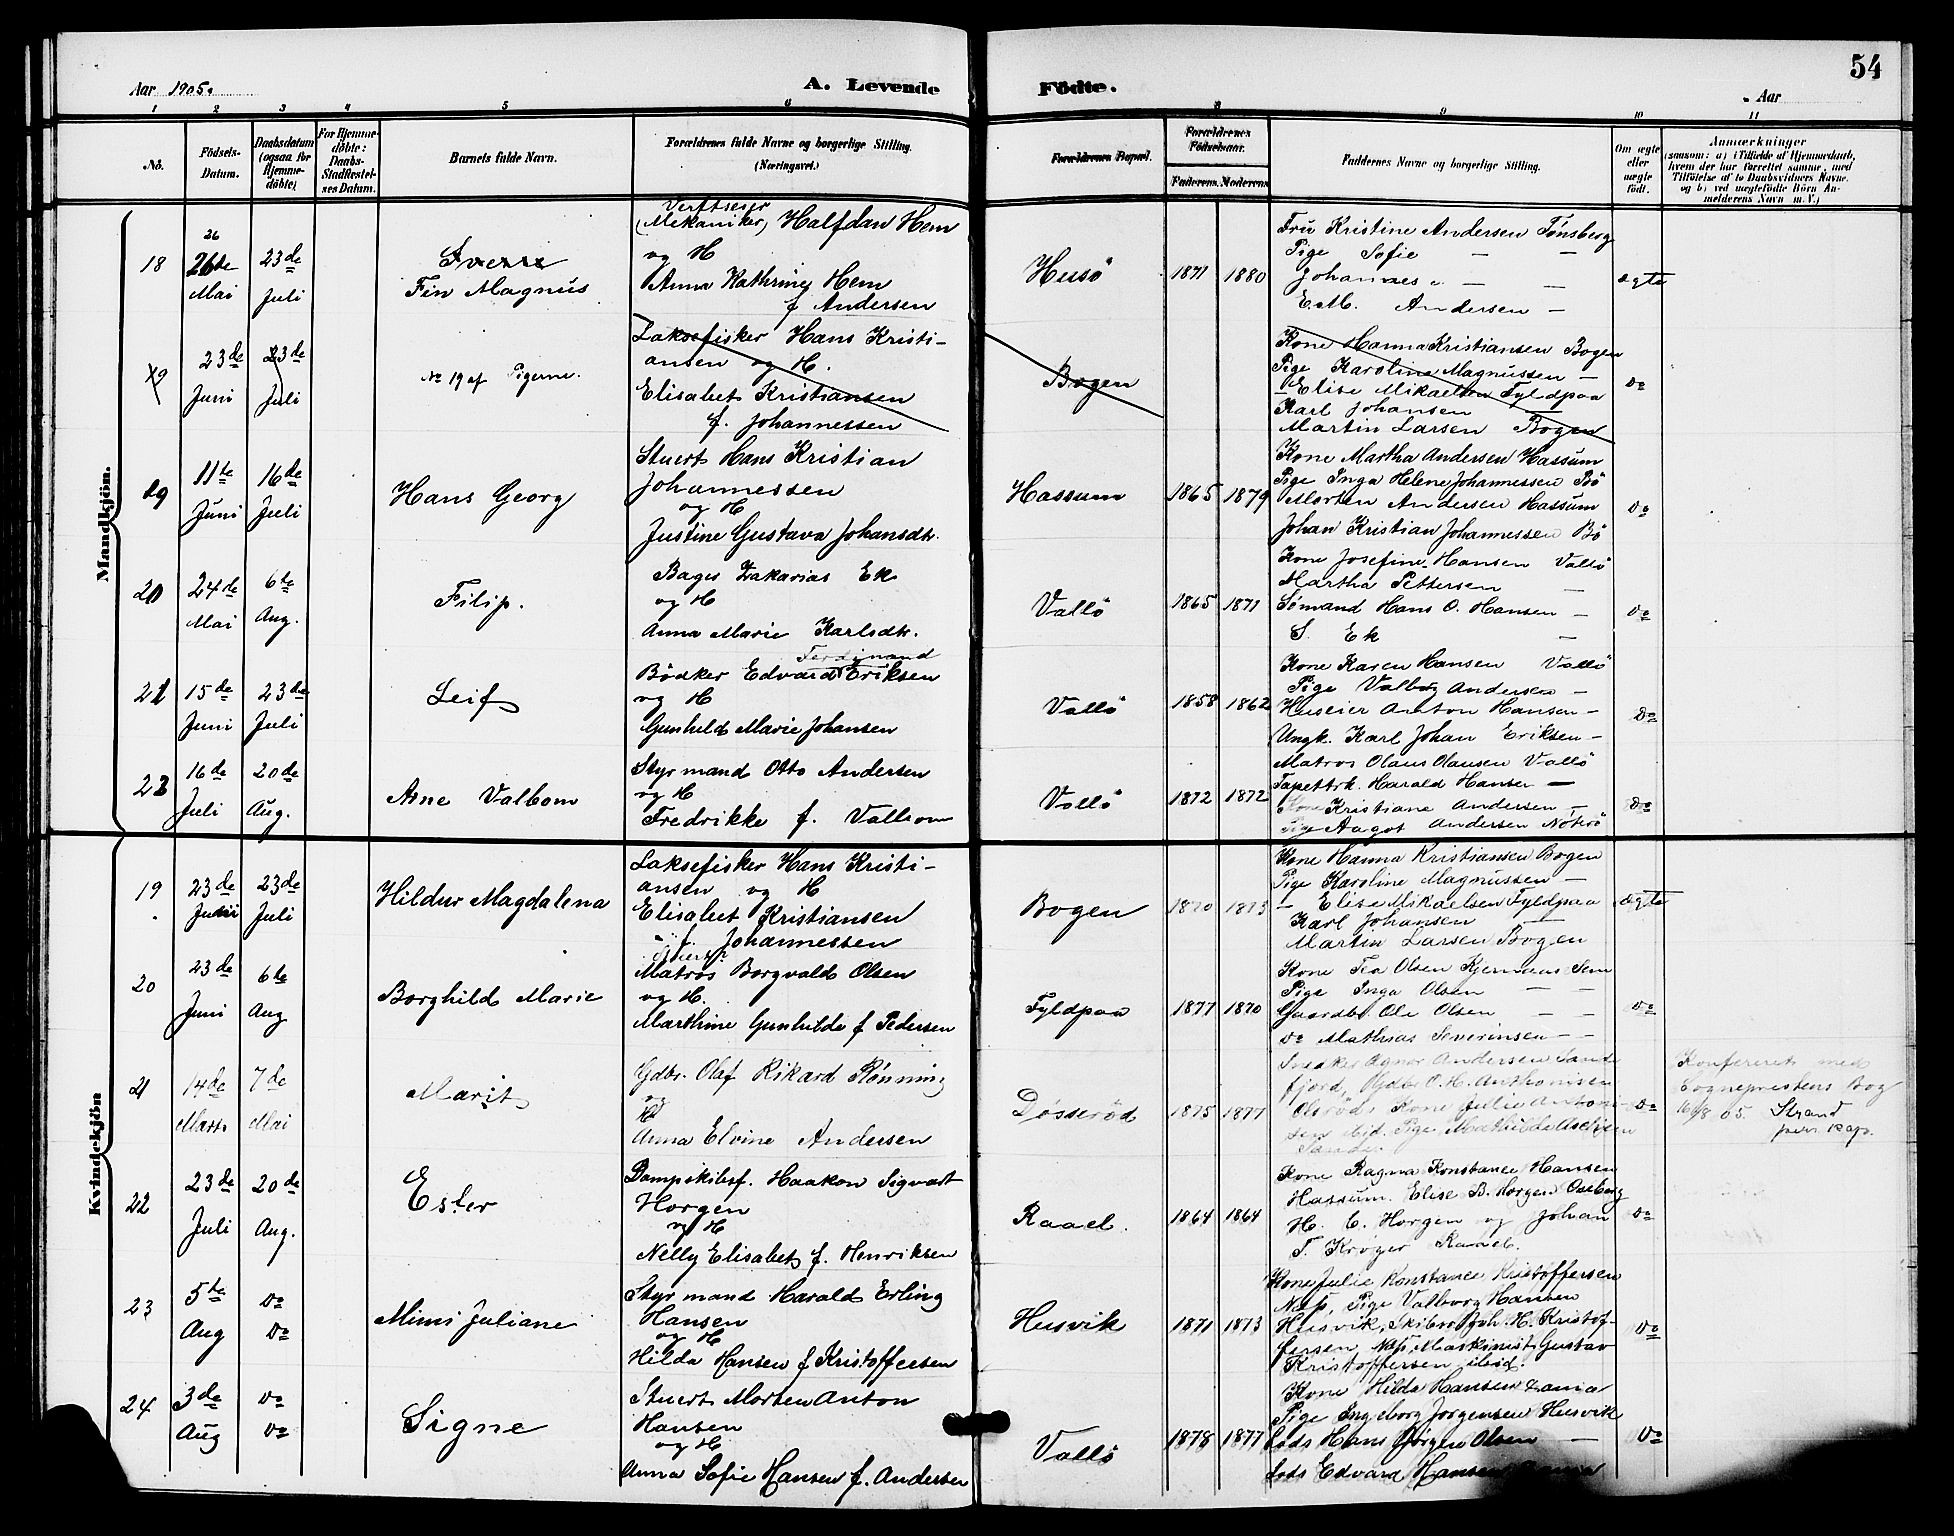 54
Aar 1905.
A. Levende
Födte.
Aar
1 2 3 4 5 6 8 9 10 11
No.
Födsels-
Datum.
Daabsdatum
(ogsaa for
Hjemme-
döbte)
For Hjemme-
döbte:
Daabs-
Stadfæstel-
ses Datum.
Barnets fulde Navn.
Forældrenes fulde Navne og borgerlige Stilling.
(Næringsvei.)
Forældrenes Bopæl.
Forældrenes
Födselsaar.
Faderens. Moderens.
Faddernes Navne og borgerlige Stilling.
Om ægte
eller
uægte
födt.
Anmærkninger
(saasom: a) i Tilfælde af Hjemmedaab,
hvem der har forrettet samme, med
Tilföielse af to Daabsvidners Navne.
og b) ved uægtefödte Börn An-
melderens Navn m. V.)
Mandkjön.
18
26
26de
Mai
23de
Juli
Sverre
Fin Magnus
Verftseier
(Mekaniker) Halfdan Hem
og H
Anna Kathrine Hem
f Andersen
Husö
1871
1880
Fru Kristine Andersen Tønsberg
Pige Sofie — —
Johannes — —
E.M. Andersen —
ægte
19
23de
Juni
23de
Juli
No 19 af Pigerne.
Laksefisker Hans Kristi-
ansen og H.
Elisabet Kristiansen
f. Johannessen
Bogen
Kone Hanna Kristiansen Bogen
Pige Karoline Magnussen —
— Elise Mikaelsen Fyldpaa
Karl Johansen —
Martin Larsen Bogen
do
19
11te
Juni
16de
Juli
Hans Georg
Stuert Hans Kristian
Johannessen
og H
Justine Gustava Johansdtr.
Hassum
1865
1879
Kone Martha Andersen Hassum
Pige Inga Helene Johannessen Bö
Morten Andersen Hassum
Johan Kristian Johannessen Bö
do
20
24de
Mai
6te
Aug.
Filip.
Bager Zakarias Ek
og H
Anna Marie Karlsdtr.
Vallö
1865
1871
Kone Josefine Hansen Vallö
Martha Pettersen —
Sømand Hans O. Hansen —
S. Ek —
do
21
15de
Juni
23de
Juli
Leif
Ferdinand
Bödker Edvard Eriksen
og H
Gunhild Marie Johansen
Vallö
1858
1862
Kone Karen Hansen Vallö
Pige Valborg Andersen —
Huseier Anton Hansen —
Ungk. Karl Johan Eriksen —
do
22
16de
Juli
20de
Aug.
Arne Valbom
Styrmand Otto Andersen
og H
Fredrikke f. Valbom
Vallö
1872
1872
Matros Olaus Olausen Vallö
Tapettrk. Harald Hansen —
Kone Kristiane Andersen —
Pige Aagot Andersen Nöterö
do
Kvindekjön
19
23de
Juni
23de
Juli
Hildur Magdalena
Laksefisker Hans Kristi-
ansen og H
Elisabet Kristiansen
f. Johannessen
Bogen
1870
1873
Kone Hanna Kristiansen Bogen
Pige Karoline Magnussen —
— Elise Mikaelsen Fyldpaa
Karl Johansen —
Martin Larsen Bogen
ægte
20
23de
Juni
6te
Aug
Borghild Marie
Matros Borgvald Olsen
og H.
Marthine Gunhilde f Pedersen
Fyldpaa
1877
1870
Kone Tea Olsen Kjernaas Sem
Pige Inga Olsen — —
Gaardbr Ole Olsen — —
do Mathias Severinsen — —
do
21
14de
Marts
7de
Mai
Marit
Gdbr. Olaf Rikard Rønning
og
H
Anna Elvine Andersen
Døsseröd
1875
1877
Snedker Agnar Andersen Sande
fjord, Gdbr O. H. Anthonisen
Olsröd, Kone Julie Antoni-
sen ibid. Pige Mathilde
do
Konfereret med
Sognepræstens Bog
16/8 05. Strand
pers. kap.
22
23de
Juli
20de
Aug.
Ester
Dampskibsf. Haakon Sigvart
Horgen
og H
Nelly Elisabet f. Henriksen
Raael.
1864
1864
Kone Ragna Konstance Hansen
Hassum. Elise B. Horgen Oseberg
H. C. Horgen og Johan
T. Krøger Raael.
do
23
5te
Aug
do
do
Mimi Juliane
Styrmand Harald Erling
Hansen
og H
Hilda Hansen f Kristoffersen
Husvik
1871
1873
Kone Julie Konstance Kristoffersen
Næs, Pige Valborg Hansen
Husvik, Skibsr Joh H. Kristof-
fersen, Næs, Maskinist Gustav
Kristoffersen ibid.
do
24
3de
Aug
do
do
Signe
Stuert Morten Anton
Hansen
og H
Anna Sofie Hansen f. Andersen
Vallö
1878
1877
Kone Hilda Hansen
Pige Ingeborg Jörgensen Husvik
Lods Hans Jörgen Olsen —
Lods Edvard Hansen
do